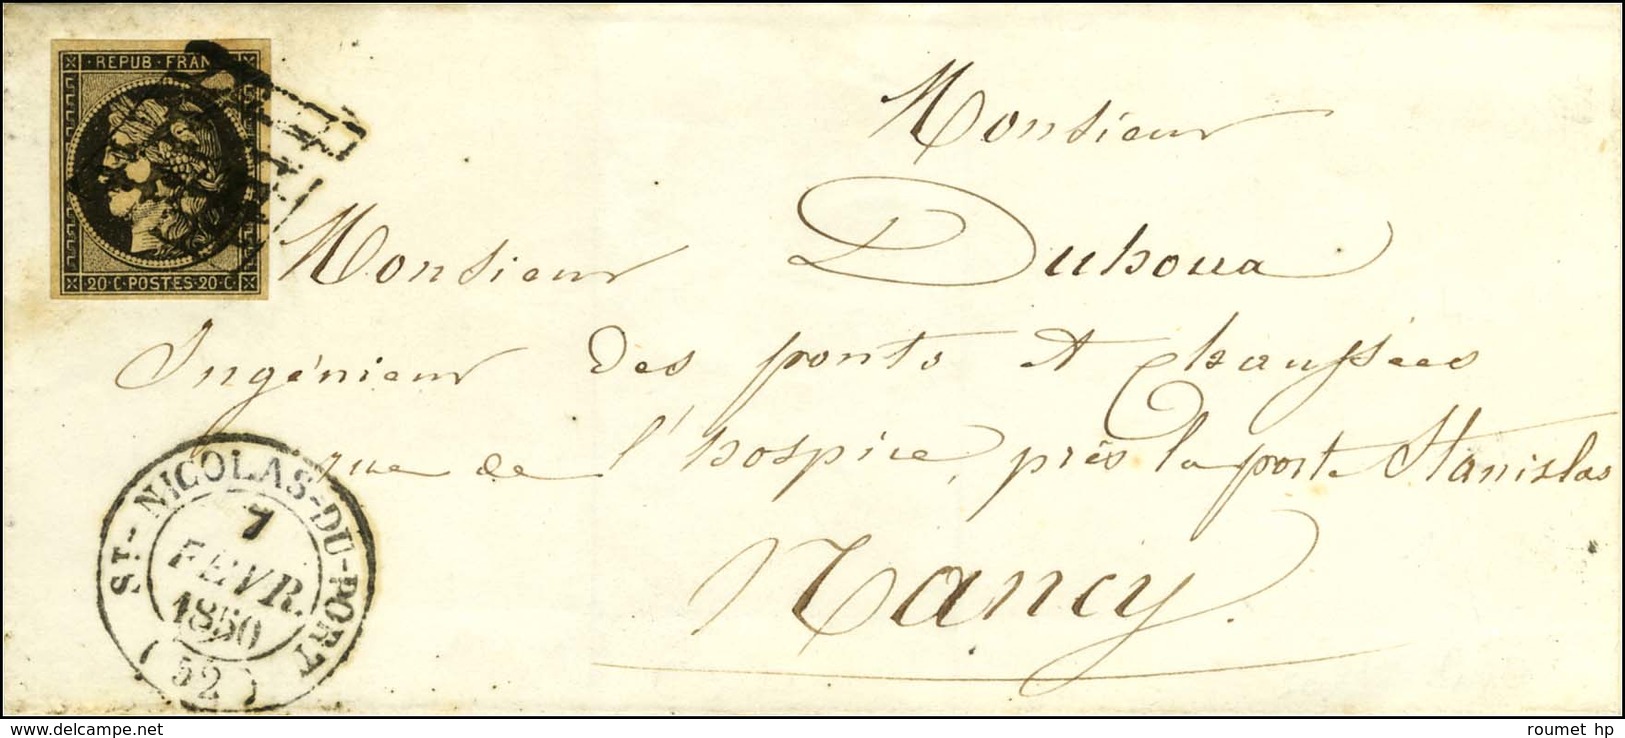 · REPUB · FRANC
20 · C · POSTES · 20 · C ·
Monsieur
Monsieur Duhoua
Ingénieur des ponts et chaussées
rue de l'hospice, près la porte Stanislas
Nancy.
ST-NICOLAS-DU-PORT
7
FEVR.
1850
(52)
roumet hp